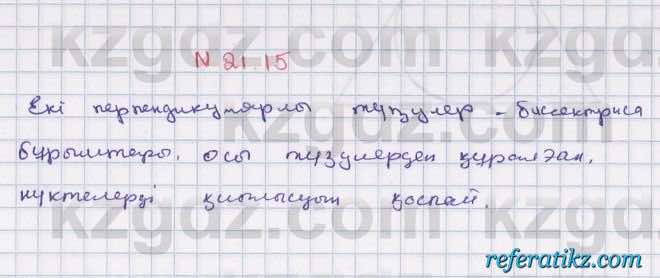 N 21.15
Екі перпендикулярлы түзулер - биссектриса
бұрыштары, осы түзулерден құралған,
нүктелерді қиылысуын қоспай.
kzgdz.com
referatikz.com